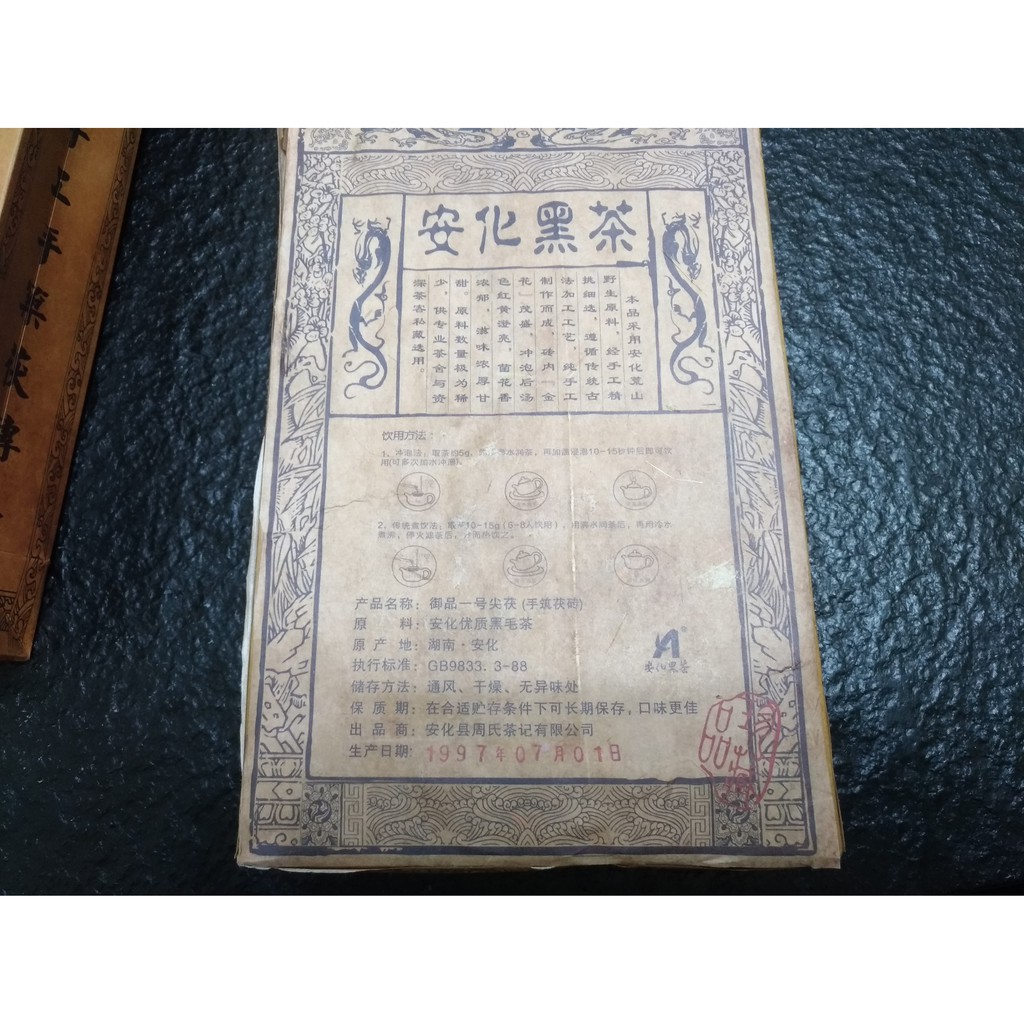 安化黑茶
本品采用安化荒山
野生原料,经手工精
挑细选,遵循传统古
法加工工艺,纯手工
制作而成,砖内“金
花”茂盛,冲泡后汤
色红黄澄亮,菌花香
浓郁,滋味浓厚甘
甜。原料数量极为稀
少,供专业茶舍与资
深茶客私藏选用。
饮用方法:
1、冲泡法:取茶约5g,
10-15秒
用(可多次加水冲泡)。
2、传统煮饮法:取茶10-15g(6-8人饮用),
产品名称:御品一号尖茯(手筑茯砖)
原 料:安化优质黑毛茶
原产地:湖南·安化
执行标准:GB9833.3-88
储存方法:通风、干燥、无异味处
保质期:在合适贮存条件下可长期保存,口味更佳
出品商:安化县周氏茶记有限公司
生产日期:1997年07月01日
安化黑茶
年藥茯磚